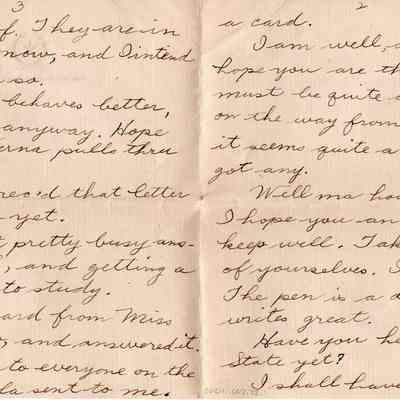 3
f. They are in
now, and I intend
so.
behaves better,
anyway. Hope
erna pulls thru
rec'd that letter
yet.
pretty busy ans-
, and getting a
to study.
ard from Miss
, and answered it.
to everyone on the
la sent to me.
2
a card.
I am well, a
hope you are th
must be quite
on the way from
it seems quite a
got any.
Well ma ho
I hope you an
keep well. Tak
of yourselves. I
The pen is a d
writes great.
Have you he
State yet?
I shall have